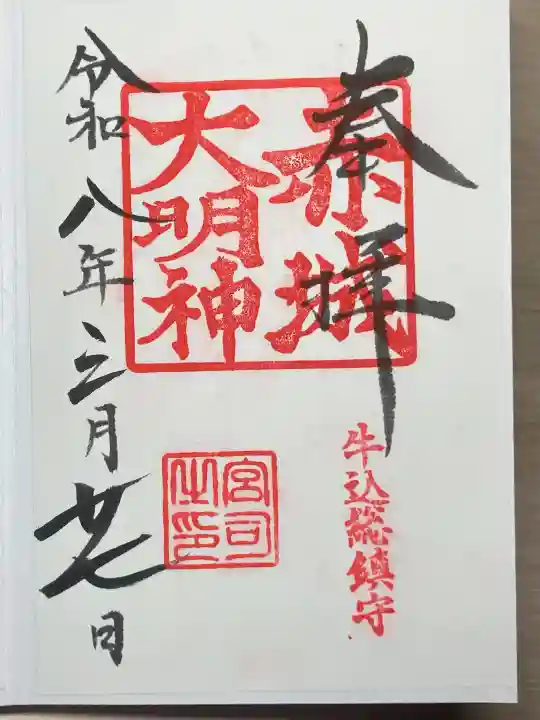 奉拝
赤城
大明神
牛込総鎮守
宮司之印
令和八年三月廿七日